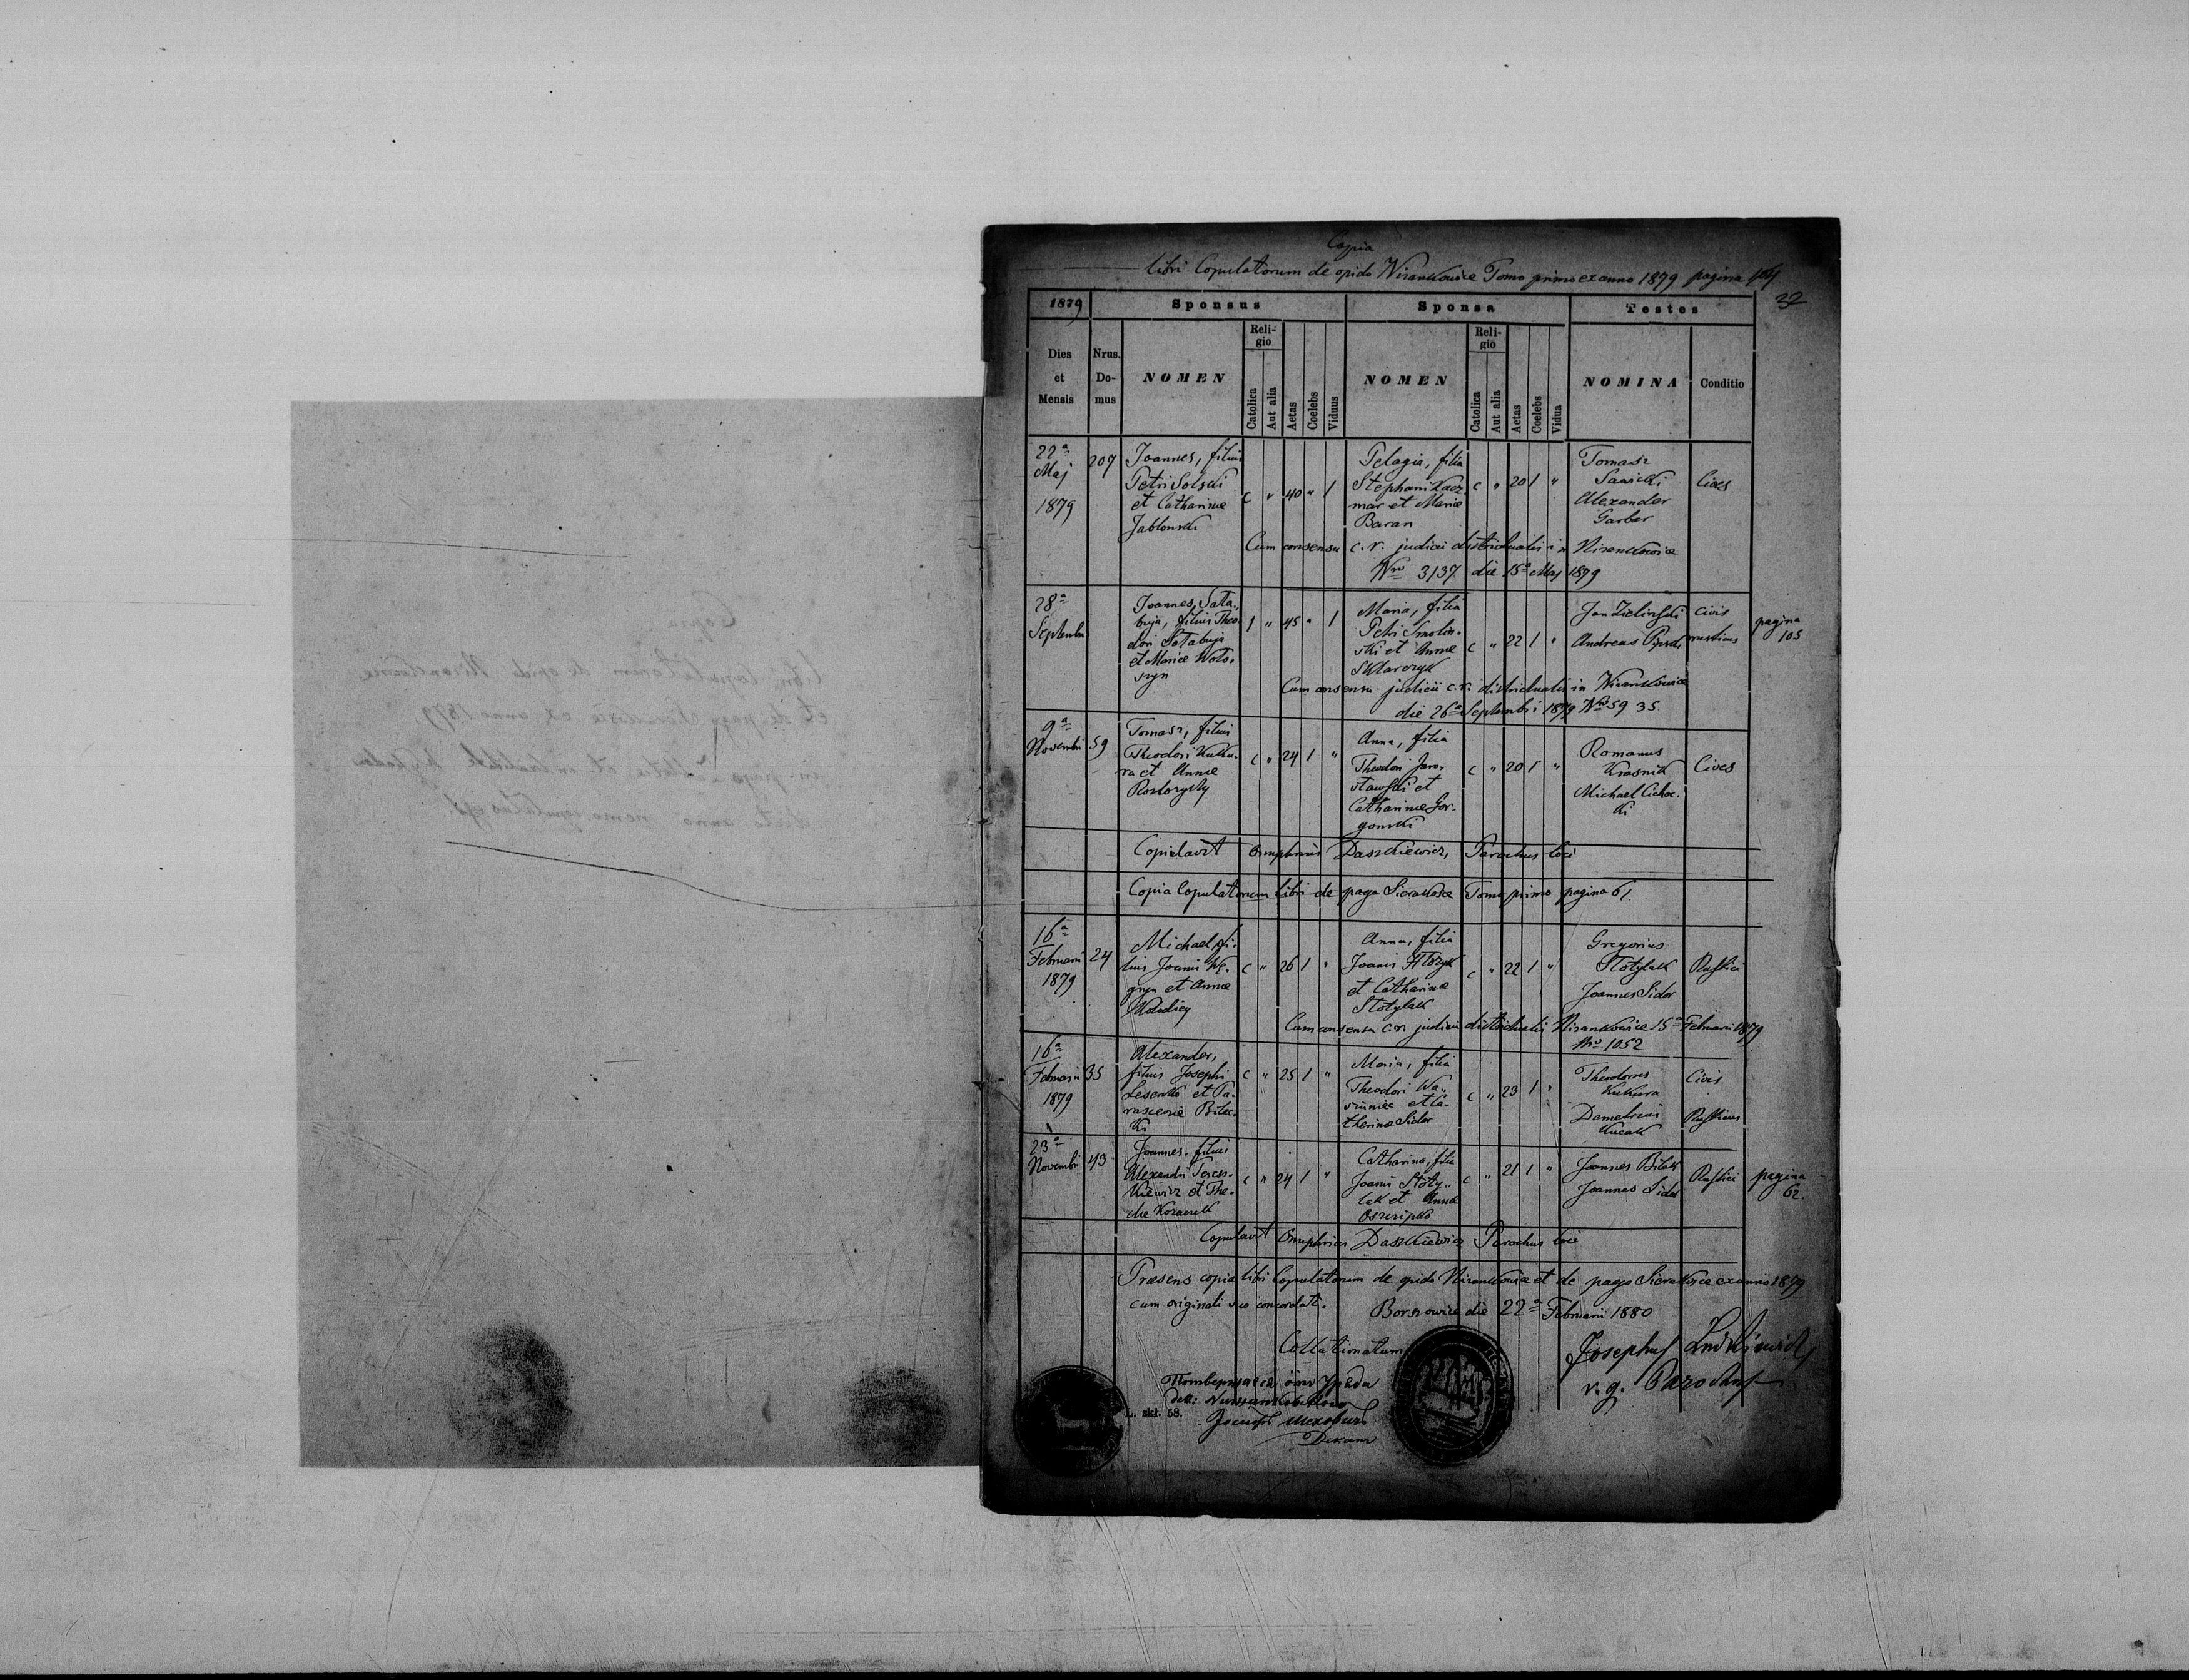 Copia
libri Copulatorum de opido Nizankowice Tomo primo ex anno 1879 pagina 104
32
1879 Sponsus Sponsa Testes
Dies et Mensis
Nrus. Do-mus
NOMEN
Reli-gio
Catolica
Aut alia
Aetas
Coelebs
Viduus
NOMEN
Reli-gio
Catolica
Aut alia
Aetas
Coelebs
Vidua
NOMINA
Conditio
22a Maj 1879
207
Joannes, filius
Petri Solski
et Catharinae
Jablonski
c " 40 " 1
Pelagia, filia
Stephani Kacz
mar et Mariae
Baran
c " 20 1 "
Tomasz
Sawicki
Alexander
Garber
Cives
Cum consensu c. r. judicii districtualis in Nizankowice
Nro 3137 die 15a Maj 1879
28a
Septembri
Joannes Sata-
buja, filius Theo
dori Satabuja
et Mariae Woto-
szyn
1 " 45 " 1
Maria, filia
Petri Smolin-
ski et Annae
Sklarczyk
c " 22 1 "
Jan Zielinski
civis
Andreas
rusticus
pagina
105
Cum consensu judicii c. r. districtualis in Nizankowice
die 26a Septembri 1879 Nro 59 35.
9a
Novembri
59
Tomasz, filius
Theodori Kuku-
ra et Annae
c " 24 1 "
Anna, filia
Theodori Jaro-
slawski et
Catharinae Gor-
gonski
c " 20 1 "
Romanus
Krasnik
Michael Cichoc-
ki
Cives
Copulavit Onuphrius Daszkiewicz, Parochus loci
Copia Copulatorum libri de pago Sierakosce Tomo primo pagina 61.
16a
Februarii
1879
24
Michael, fi-
lius Joannis Wę-
gryn et Annae
Kolodiey
c " 26 1 "
Anna, filia
Joannis
et Catharinae
Stotylak
c " 22 1 "
Gregorius
Stotylak
Joannes Sidor
Rustici
Cum consensu c. r. judicii districtualis Nizankowice 15a Februarii 1879
Nro 1052
16a
Februarii
1879
35
Alexander,
filius Josephi
Lesenko et Pa-
rasceviae Bilec-
ki
c " 25 1 "
Maria, filia
Theodori Wa-
et Ca-
therinae Sidor
c " 23 1 "
Theodorus
Kukura
Civis
Demetrius
Kucak
Rusticus
23a
Novembri
43
Joannes, filius
Alexandri Teresz-
kiewicz et The-
clae Kozaczek
c " 24 1 "
Catharina, filia
Joannis Stoty-
lak et Annae
Oszczipko
c " 21 1 "
Joannes Bilak
Joannes Sidor
Rustici
pagina
62.
Copulavit Onuphrius Daszkiewicz Parochus loci
Praesens copia libri Copulatorum de opido Nizankowice et de pago Sierakosce ex anno 1879
cum originali suo concordat.
Borszowice die 22a Februarii 1880
Collationatum
Josephus
v. g. Parochus
Потверждаеся отъ Уряда
L. skł. 58.
Деканъ